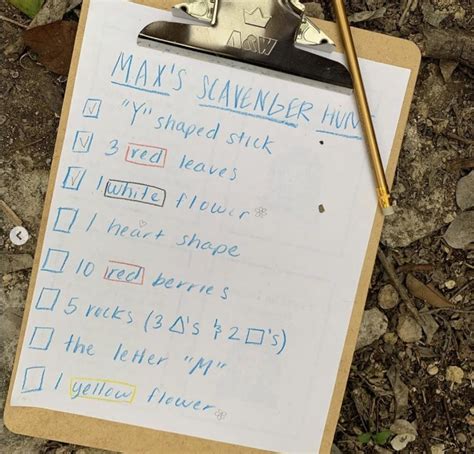 MAX'S SCAVENGER HUN
"Y" shaped stick
3 red leaves
1 white flower
1 heart shape
10 red berries
5 rocks (3 △'s & 2 □'s)
the letter "M"
1 yellow flower